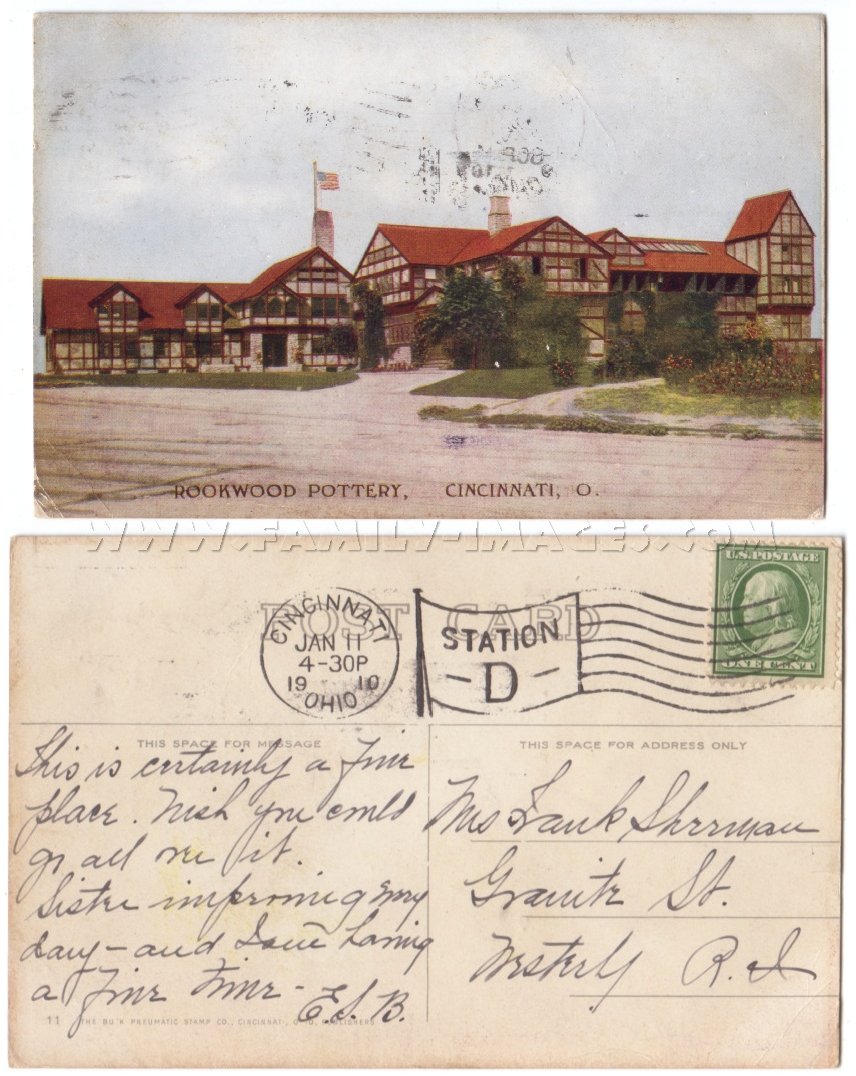 ROOKWOOD POTTERY, CINCINNATI, O.
WWW.FAMILY-IMAGES.COM
POST CARD
CINCINNATI
JAN 11
4-30P
19 10
OHIO
STATION
- D -
U.S. POSTAGE
ONE CENT
THIS SPACE FOR MESSAGE
THIS SPACE FOR ADDRESS ONLY
This is certainly a fine
place. Wish you could
go all over it.
Sister improving every
day - and I am having
a fine time -
E. S. B.
Mrs Frank Sherman
Granite St.
Westerly R. I.
11 THE PNEUMATIC STAMP CO., CINCINNATI, PUBLISHERS